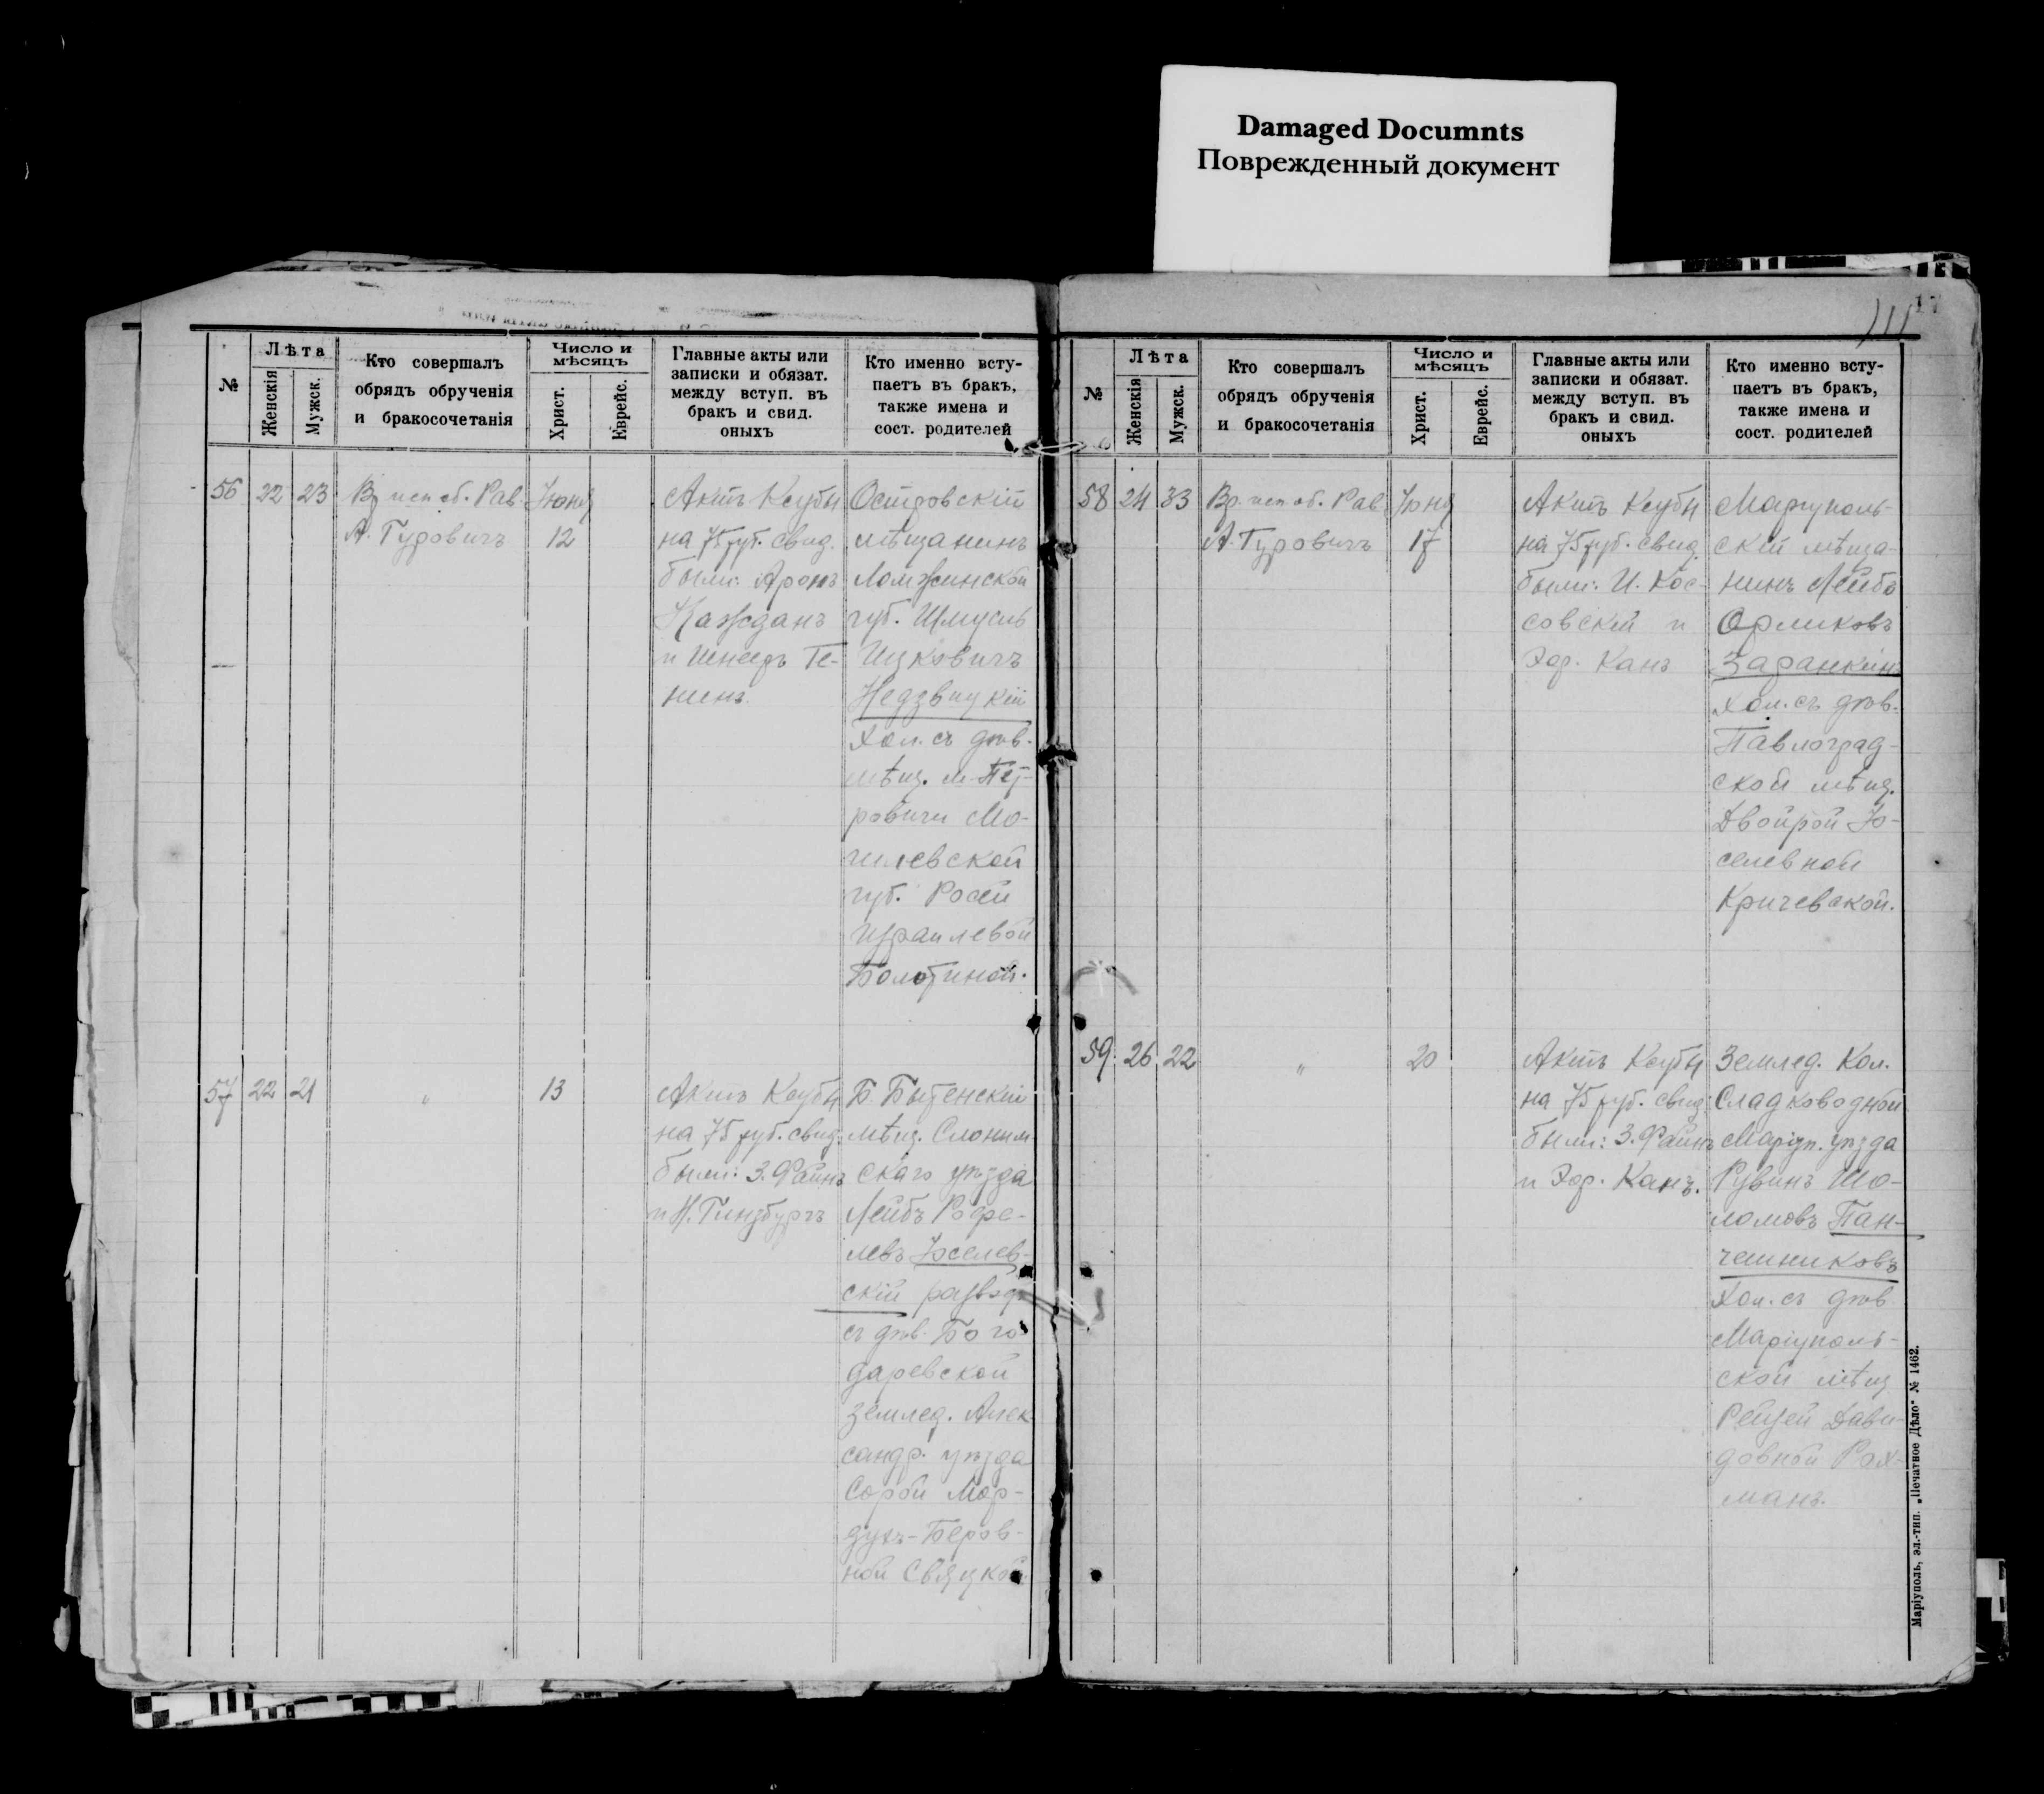 Damaged Documnts
Поврежденный документ
№
Лѣта
Женскія
Мужск.
Кто совершалъ
обрядъ обрученія
и бракосочетанія
Число и
мѣсяцъ
Христ.
Еврейс.
Главные акты или
записки и обязат.
между вступ. въ
бракъ и свид.
оныхъ
Кто именно всту-
паетъ въ бракъ,
также имена и
сост. родителей
56
22
23
Вр. исп. об. Рав.
А. Гуровичъ
Іюня
12
Актъ Ксубы
на 75 руб. свид.
были: Аронъ
Кажданъ
и Шнееръ Ге-
нинъ.
Островскій
мѣщанинъ
Ломжинской
губ. Шмуель
Ицковичъ
Недзвицкій
хол. съ дѣв.
мѣщ. м. Пет-
ровичи Мо-
гилевской
губ. Росей
Израилевой
Болотиной.
57
22
21
"
13
Актъ Ксубы
на 75 руб. свид.
были: З. Файнъ
и Н. Гинзбургъ
Б. Бытенскій
мѣщ. Слоним-
скаго уѣзда
Лейбъ Рофе-
левъ Іоселев-
скій развод.
съ дѣв. Бого-
даревской
землед. Алек-
сандр. уѣзда
Сорой Мор-
духъ-Беров-
ной Свяцкой
111
№
Лѣта
Женскія
Мужск.
Кто совершалъ
обрядъ обрученія
и бракосочетанія
Число и
мѣсяцъ
Христ.
Еврейс.
Главные акты или
записки и обязат.
между вступ. въ
бракъ и свид.
оныхъ
Кто именно всту-
паетъ въ бракъ,
также имена и
сост. родителей
58
24
33
Вр. исп. об. Рав.
А. Гуровичъ
Іюня
17
Актъ Ксубы
на 75 руб. свид.
были: И. Кос-
совскій и
Эфр. Канъ
Маріуполь-
скій мѣща-
нинъ Лейбъ
Орликовъ
Заранкинъ
хол. съ дѣв.
Павлоград-
ской мѣщ.
Двойрой Іо-
селевной
Кричевской.
59
26
22
"
20
Актъ Ксубы
на 75 руб. свид.
были: З. Файнъ
и Эфр. Канъ.
Землед. Кол.
Сладководной
Маріуп. уѣзда
Рувинъ Шо-
ломовъ Пан-
чешниковъ
хол. съ дѣв.
Маріуполь-
ской мѣщ
Рейзей Дави-
довной Рах-
манъ.
Маріуполь, эл.-тип. „Печатное Дѣло" № 1462.